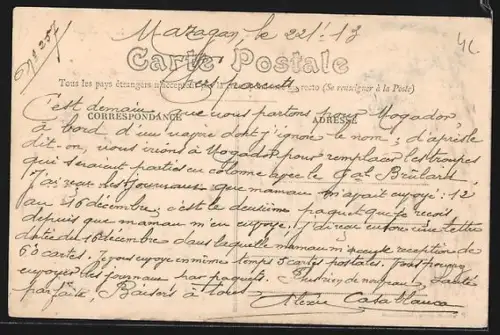 Mazagan, le 2 1. 13
Carte Postale
Chers parents,
Tous les pays étrangers n'acceptent pas la recto (Se renseigner à la Poste)
C'est demain que nous partons pour Mogador
CORRESPONDANCE ADRESSE
à bord d'un navire dont j'ignore le nom; d'après le
dit-on, nous irions à Mogador pour remplacer les troupes
qui seraient parties en colonne avec le Gal Brûlard.
J'ai reçu les journaux que maman m'avait envoyé: 12
au 16 décembre. c'est le deuxième paquet que je reçois
depuis que maman m'en envoye. J'ai reçu une lettre
datée du 16 décembre dans laquelle maman m' réception de
60 cartes. Je vous envoye en même temps 5 cartes postales. Vous pouvez
envoyer les journaux par paquets. Plus rien de nouveau, Santé
parfaite, Baisers à tous. Alexis Casablanca